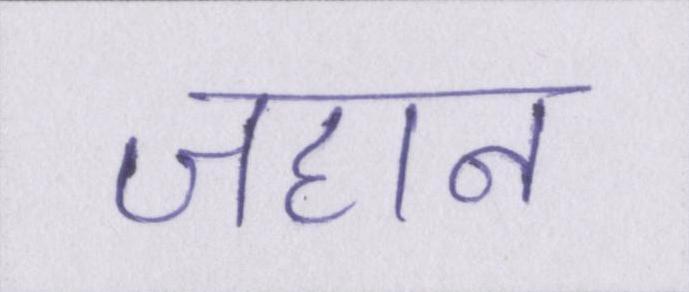 जहान